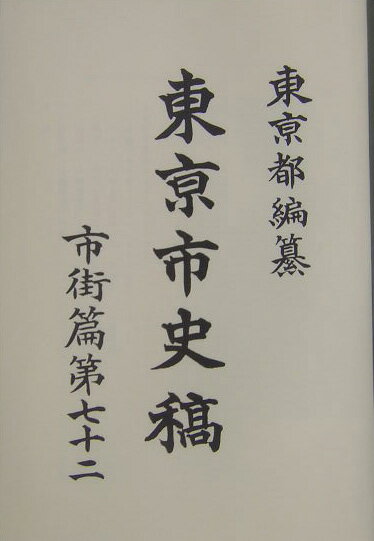 東京都編纂
東京市史稿
市街篇第七十二